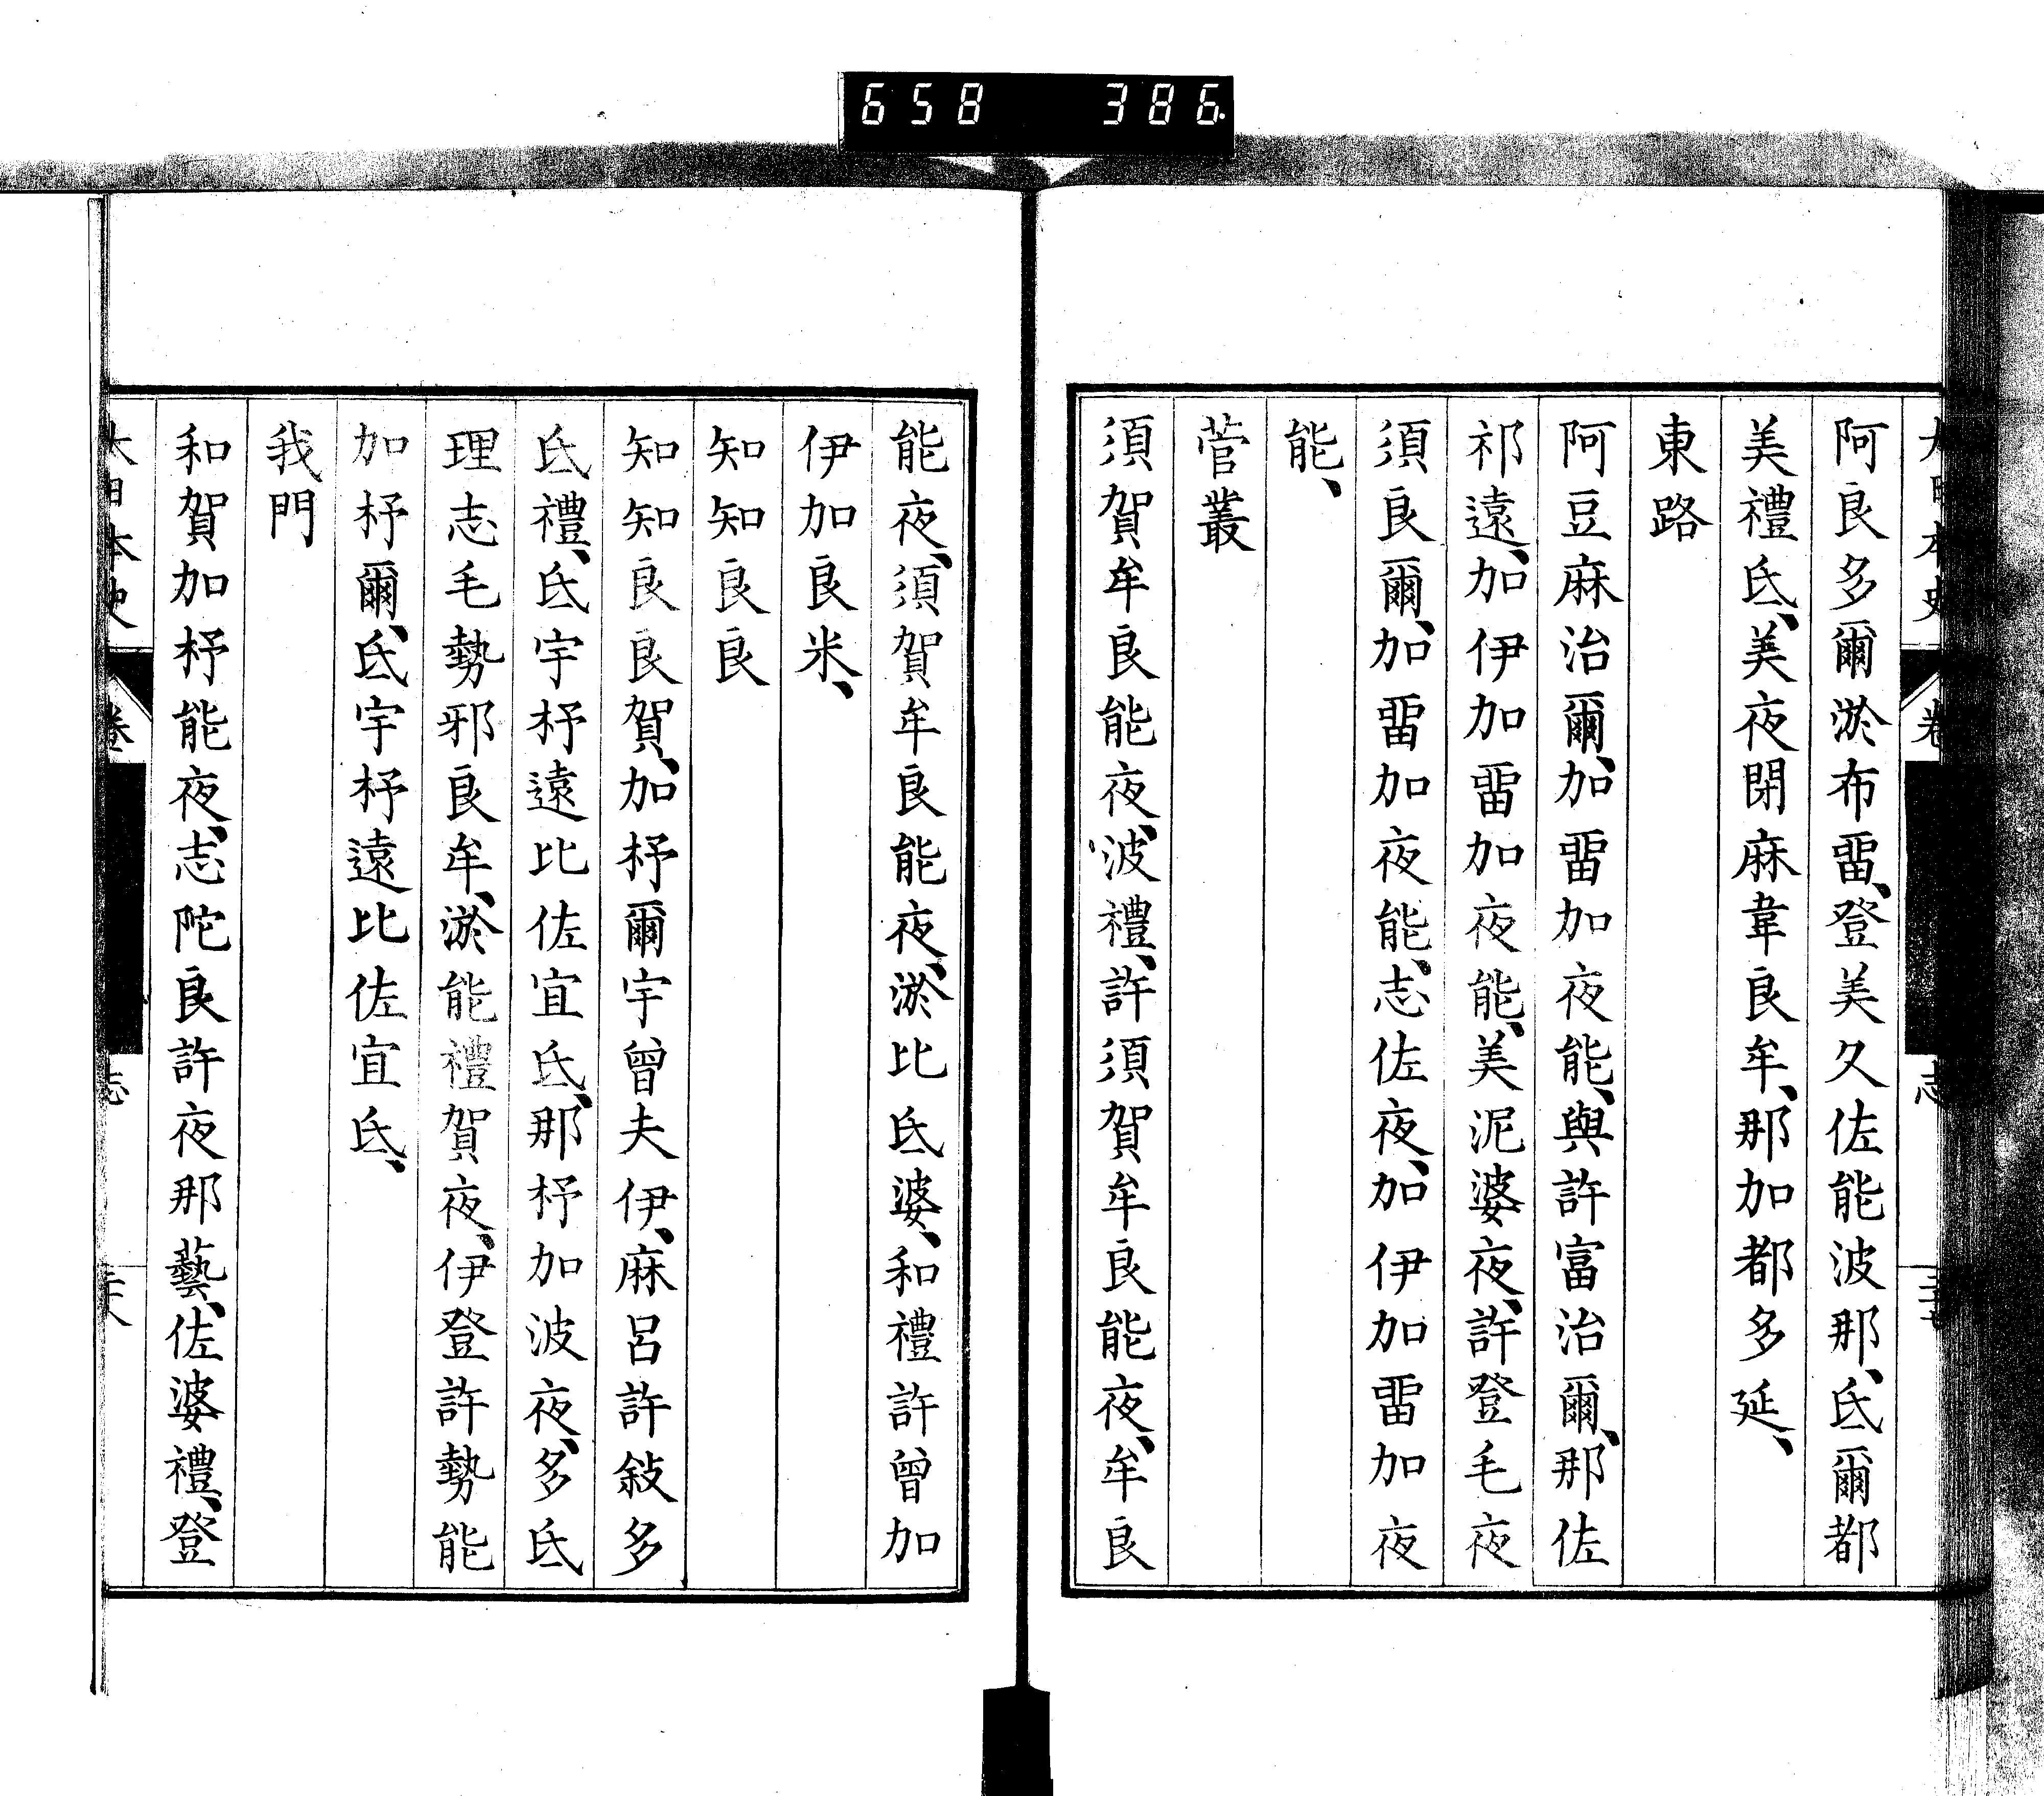 658 386
大日本史 卷 志
阿良多爾淤布畱、登美久佐能波那、氐爾都
美禮氐、美夜閉麻韋良牟、那加都多延、
東路
阿豆麻治爾、加畱加夜能、與許富治爾、那佐
祁遠、加伊加畱加夜能、美泥婆夜、許登毛夜
須良爾、加畱加夜能、志佐夜、加伊加畱加夜
能、
菅叢
須賀牟良能夜、波禮、許須賀牟良能夜、牟良
能夜、須賀牟良能夜、淤比氐婆、和禮許曾加
伊加良米、
知知良良
知知良良賀、加杼爾宇曾夫伊、麻呂許敍多
氐禮、氐宇杼遠比佐宜氐、那杼加波夜、多氐
理志毛勢邪良牟、淤能禮賀夜、伊登許勢能
加杼爾、氐宇杼遠比佐宜氐、
我門
和賀加杼能夜、志陀良許夜那藝、佐婆禮、登
大日本史 卷 志